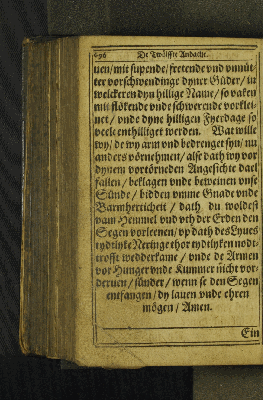 696 De Twölffte Andacht.
uen/ mit supende/ fretende vnd vnnüt-
ter vorschwendinge dyner Güder/ in
welckeren dyn hillige Name/ so vaken
mit flökende vnde schwerende vorklei-
net/ vnde dyne hilligen Fyerdage so
veele enthilliget werden. Wat wille
wy/ de wy arm vnd bedrenget syn/ nu
anders vörnehmen/ alse dath wy vor
dynem vortörneden Angesichte dael
fallen/ beklagen vnde beweinen vnse
Sünde/ bidden vmme Gnade vnde
Barmherticheit/ dath du woldest
vam Hemmel vnd vth der Erden den
Segen vorleenen/ vp dath des Lyues
tydtlyke Neringe thor tydtlyken nodt-
trofft wedderkame/ vnde de Armen
vor Hunger vnde Kummer nicht vor-
deruen/ sünder/ wenn se den Segen
entfangen/ dy lauen vnde ehren
mögen/ Amen.
Ein